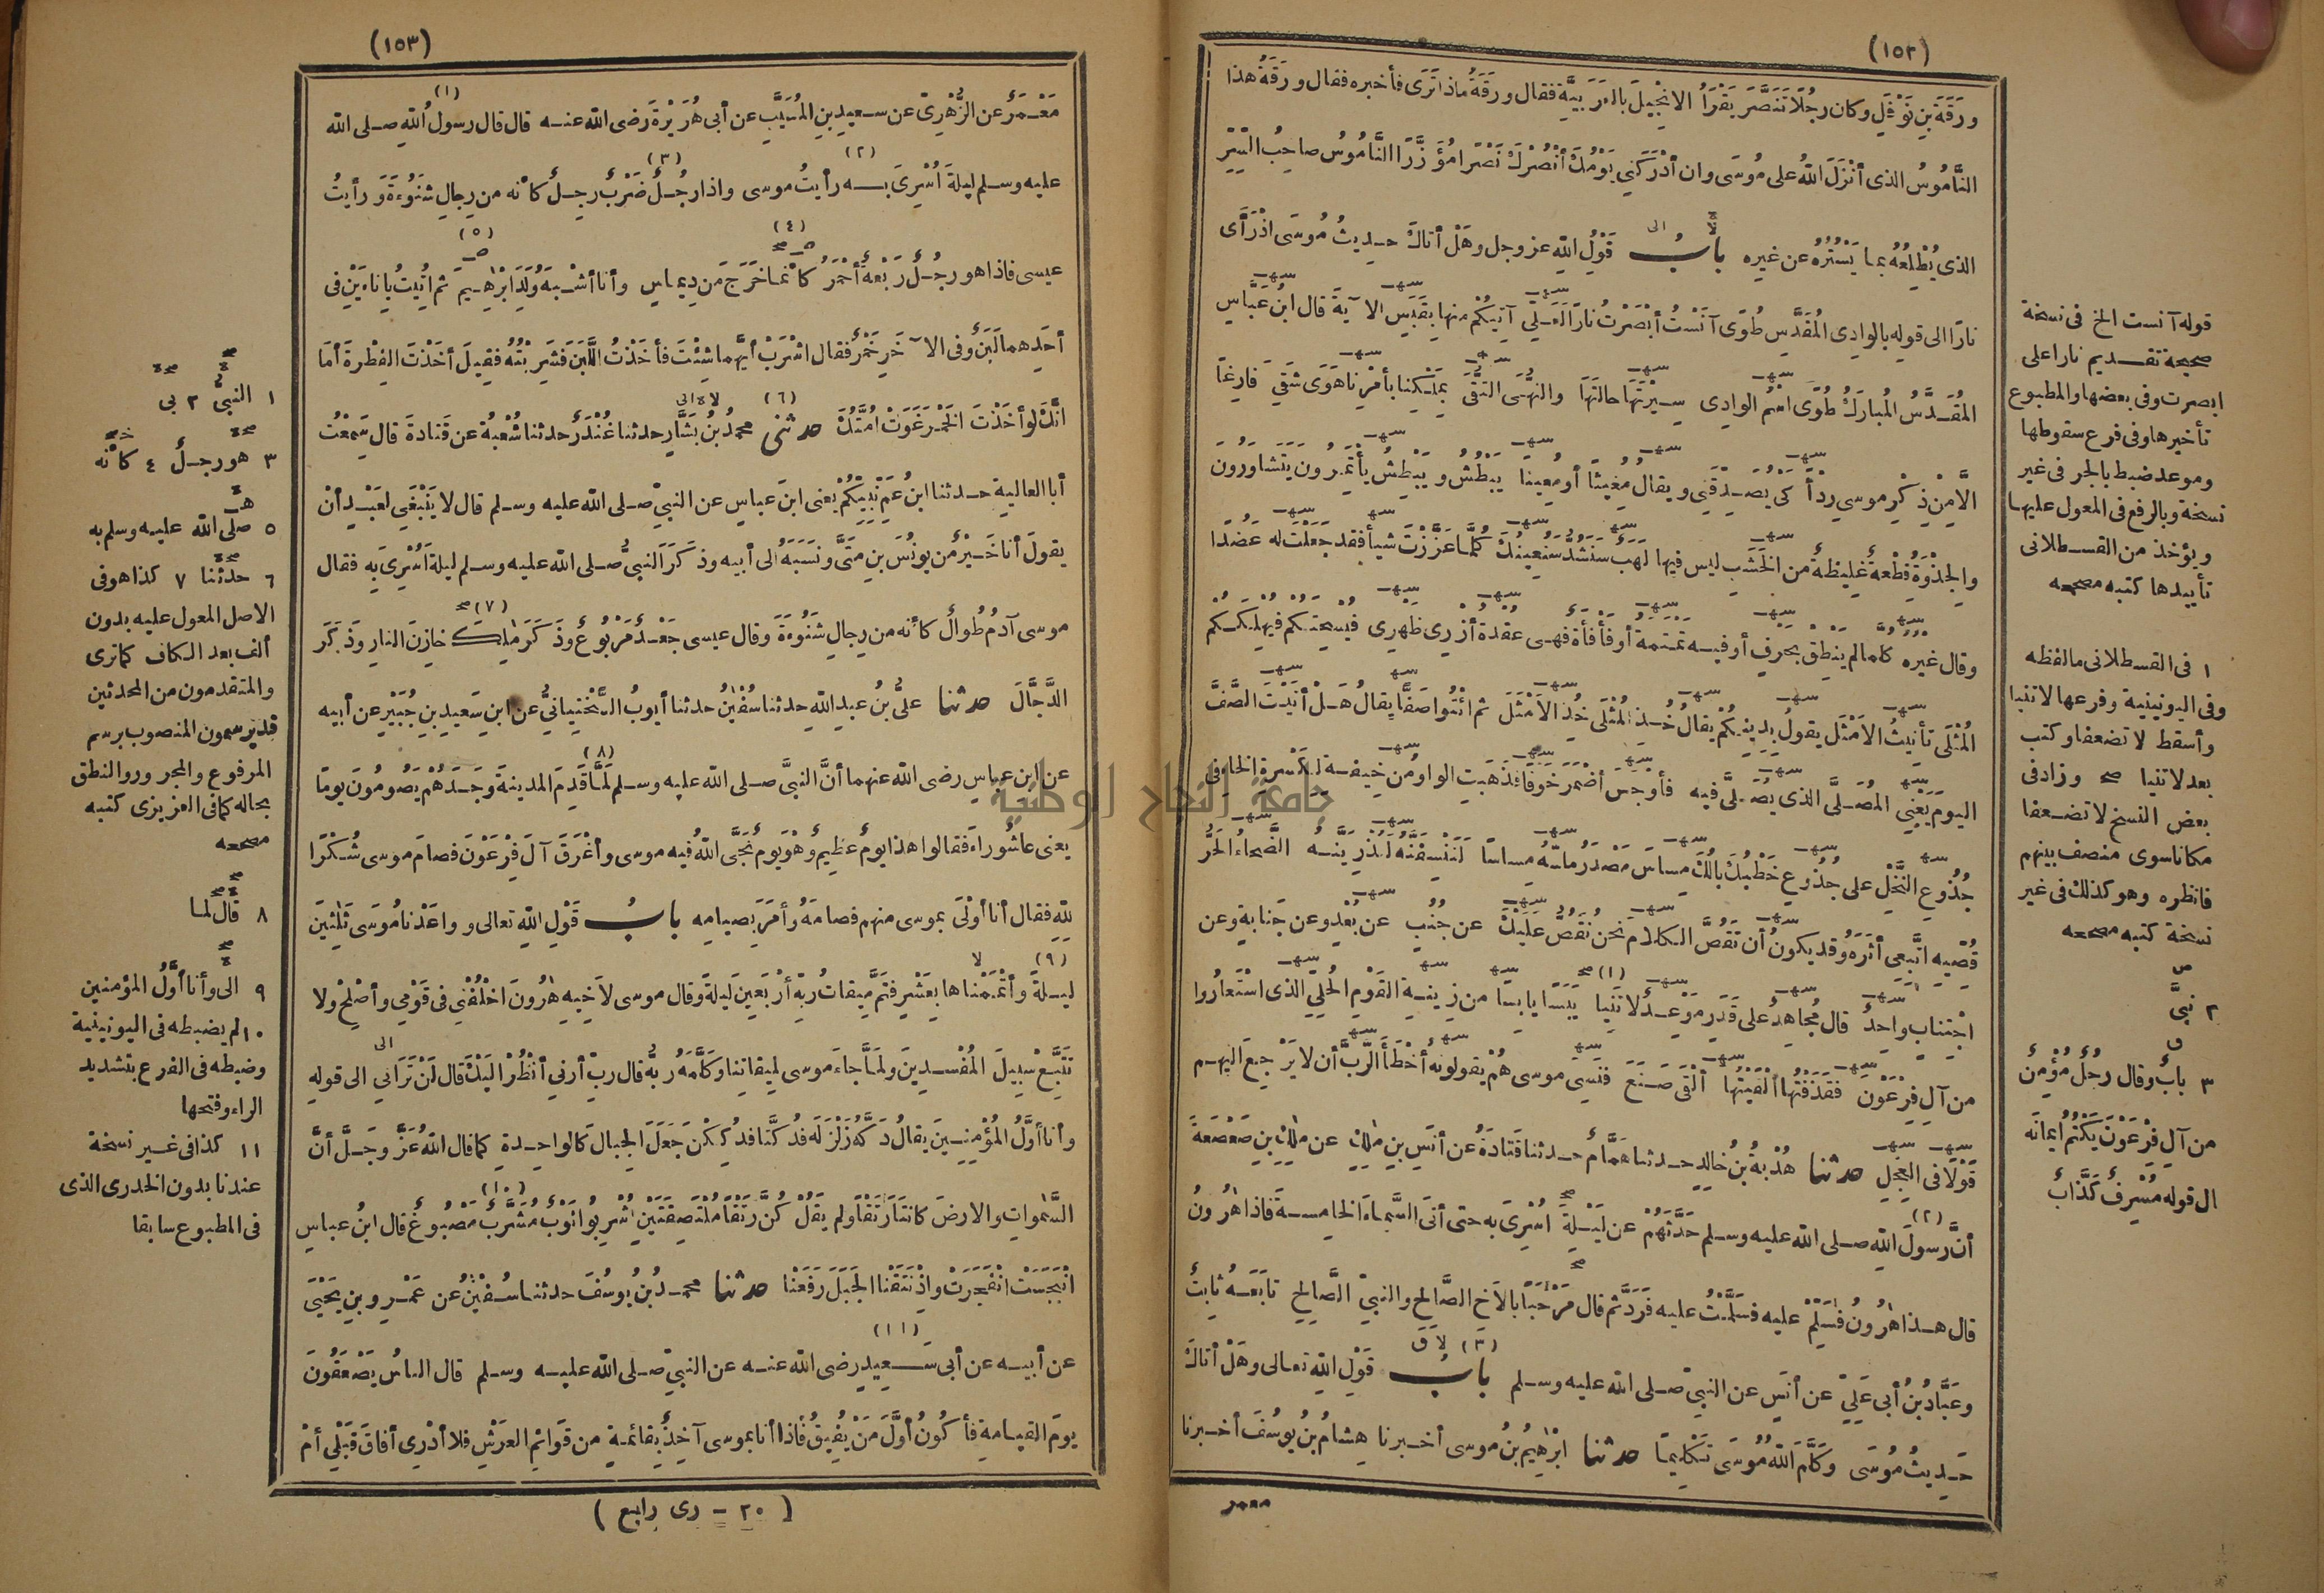 (١٥٢)
ورَقَةَ بنِ نَوْفَلٍ وكان رجُلًا تَنَصَّرَ يَقْرَأُ الانْجِيلَ بالعَرَبِيَّةِ فقال ورَقَةُ ماذا تَرَى فأخبره فقال ورَقَةُ هذا
النَّامُوسُ الذى أنْزَلَ اللهُ على مُوسَى وان أدْرَكَنِى يَوْمُكَ أنْصُرْكَ نَصْرًا مُؤَزَّرًا النَّامُوسُ صاحِبُ السِّرِّ
الذى يُطْلِعُهُ بما يَسْتُرُهُ عن غيرِه بابُ قَوْلُ اللهِ عز وجل وهَلْ أتاكَ حديثُ مُوسَى اذْ رَأَى
نارًا الى قوله بالوادِى المُقَدَّسِ طُوًى آنَسْتُ أبْصَرْتُ نارًا لَعَلِّى آتِيكُمْ منها بِقَبَسٍ الآيةَ قال ابنُ عَبَّاسٍ
المُقَدَّسُ المُبارَكُ طُوًى اسْمُ الوادِى سِيرَتَهَا حالَتَهَا والنُّهَى التُّقَى بِمَلْكِنا بأمْرِنا هَوَى شَقِىَ فارِغًا
الَّا مِنْ ذِكْرِ موسى رِدْأً كى يُصَدِّقَنِى ويقالُ مُغِيثًا أو مُعِينا يَبْطُشُ ويَبْطِشُ يأْتَمِرُونَ يَتَشاوَرُونَ
والجِذْوَةُ قِطْعَةٌ غَلِيظَةٌ من الخَشَبِ ليس فيها لَهَبٌ سَنَشُدُّ سَنُعِينُكَ كُلَّما عَزَّزْتَ شيأ فقد جَعَلْتَ له عَضُدًا
وقال غيرُه كُلَّما لم يَنْطِقْ بحَرفٍ أو فيه تَمْتَمةٌ أو فَأْفَأَةٌ فهى عقدةٌ أزْرِى ظَهْرِى فيُسْحِتَكم فيُهْلِكَكُمْ
المُثْلَى تأنيثُ الأمْثَلِ يقولُ بِدِينِكُمْ يقالُ خُذِ المُثْلَى خُذِ الأمْثَلَ ثم ائْتُوا صَفًّا يقالُ هَلْ أتَيْتَ الصَّفَّ
اليومَ يَعْنِى المُصَلَّى الذى يُصَلَّى فيه فأوْجَسَ أضْمَرَ خَوْفًا فذَهَبَتِ الواوُ من خِيفةً لكَسْرةِ الخاءِ فى
جُذُوعِ النَّخْلِ على جُذُوعِ خَطْبُكَ بالُكَ مِساسَ مَصْدَرُ ماسَّهُ مِساسًا لَنَنْسِفَنَّهُ لَنُذْرِيَنَّهُ الضَّحاءُ الحَرُّ
قُصِّيهِ اتَّبِعى أثَرَهُ وقد يكونُ أن تَقُصَّ الكلامَ نحنُ نَقُصُّ عَلَيْكَ عن جُنُبٍ عن بُعْدٍ وعن جَنابةٍ وعن
اجْتِنابٍ واحِدٌ قال مُجاهِدٌ على قَدَرٍ مَوْعِدٌ لاتَنِيا (١) يَبَسًا يابسًا من زِينةِ القَوْمِ الحُلِىِّ الذى اسْتَعارُوا
من آلِ فِرْعَوْنَ فَقَذَفْتُها ألْقَيْتُها ألْقَى صَنَعَ فَنَسِىَ موسى هُمْ يقولونه أخْطَأَ الرَّبَّ أن لا يَرْجِعَ اليهم
قَوْلًا فى العِجْلِ حدثنا هُدْبةُ بنُ خالِدٍ حدثنا هَمَّامٌ حدثنا قَتادَةُ عن أنَسِ بنِ مٰلِكٍ عن مٰلِكِ بنِ صَعْصَعةَ
أنَّ رسولَ (٢) اللهِ صلى الله عليه وسلم حَدَّثَهُمْ عن لَيْلةَ أُسْرِىَ به حتى أتَى السَّماءَ الخامسةَ فَاذا هٰرُونُ
قال هذا هٰرُونُ فَسَلِّمْ عليه فسَلَّمْتُ عليه فَرَدَّ ثم قال مَرْحَبًا بالأَخِ الصَّالحِ والنبىِّ الصَّالِحِ تابَعَهُ ثابتٌ
وعَبَّادُ بنُ أبى عَلِىٍّ عن أنَسٍ عن النبىِّ صلى الله عليه وسلم بابُ (٣) قَوْلِ اللهِ تعالى وهَلْ أتاكَ
حَدِيثُ مُوسَى وكَلَّمَ اللهُ مُوسَى تَكْلِيمًا حدثنا ابْرٰهِيمُ بنُ موسى أخبرنا هِشامُ بنُ يوسُفَ أخبرنا
معمر
قوله آنست الخ فى نسخة
صحيحة تقديم نارا على
ابصرت وفى بعضها والمطبوع
تأخيرها وفى فرع سقوطها
وموعد ضبط بالجر فى غير
نسخة وبالرفع فى المعول عليها
ويؤخذ من القسطلانى
تأييدها كتبه مصححه
١ فى القسطلانى مالفظه
وفى اليونينية وفرعها لاتنيا
وأسقط لاتضعفا وكتب
بعد لاتنيا صح وزاد فى
بعض النسخ لاتضعفا
مكانا سوى منصف بينهم
فانظره وهو كذلك فى غير
نسخة كتبه مصححه
٢ نبىَّ
٣ بابٌ وقال رجُلٌ مُؤْمِنٌ
من آلِ فِرْعَوْنَ يَكْتُمُ ايمانَه
الى قوله مُسْرِفٌ كَذَّابٌ
(١٥٣)
مَعْمَرٌ عن الزُّهْرِىِّ عن سعيدِ بنِ المُسَيَّبِ عن أبى هُرَيْرةَ رضى الله عنه قال قال رسولُ (١) اللهِ صلى الله
عليه وسلم ليلةَ أُسْرِىَ به (٢) رأيتُ موسى واذا رجُلٌ (٣) ضَرْبٌ رجِلٌ كأنه من رِجالِ شَنُوءَةَ ورأيتُ
عيسى فاذا هو رجُلٌ رَبْعةٌ أحْمَرُ كأنما (٤) خَرَجَ من دِيماسٍ وأنا أشْبَهُ ولَدِ ابْرٰهِيمَ (٥) ثم أُتِيتُ باناءَيْنِ فى
أحَدِهما لَبَنٌ وفى الآخَرِ خَمْرٌ فقال اشْرَبْ أيَّهما شِئْتَ فأخَذْتُ اللَّبَنَ فشَرِبْتُهُ فقِيلَ أخَذْتَ الفِطْرةَ أمَا
انَّكَ لو أخَذْتَ الخَمْرَ غَوَتْ امَّتُكَ حدثنى (٦) محمدُ بنُ بَشَّارٍ حدثنا غُنْدَرٌ حدثنا شُعْبةُ عن قَتادةَ قال سَمِعْتُ
أبا العاليةِ حدثنا ابنُ عَمِّ نَبِيِّكُمْ يعنى ابنَ عباسٍ عن النبىِّ صلى الله عليه وسلم قال لا يَنْبَغِى لعَبْدٍ أنْ
يقولَ أنا خَيْرٌ من يونُسَ بنِ مَتَّى ونَسَبَهُ الى أبيه وذكَرَ النبىُّ صلى الله عليه وسلم ليلةَ أُسْرِىَ بِه فقال
موسى آدَمُ طُوالٌ كأنه من رِجالِ شَنُوءةَ وقال عيسى جَعْدٌ مَرْبُوعٌ وذَكَرَ مٰلِكَ (٧) خازِنَ النارِ وذكَرَ
الدَّجَّالَ حدثنا علىُّ بنُ عبدِ اللهِ حدثنا سُفْيٰنُ حدثنا أيوبُ السَّخْتِيانىُّ عن ابنِ سَعيدِ بنِ جُبَيْرٍ عن أبيه
عن ابنِ عباسٍ رضى الله عنهما أنَّ النبىَّ صلى الله عليه وسلم لَمَّا (٨) قَدِمَ المدينةَ وجَدَهُمْ يَصُومُونَ يومًا
يعنى عاشُوراءَ فقالوا هذا يومٌ عظيمٌ وهْوَ يومٌ نَجَّى اللهُ فيه موسى وأغْرَقَ آلَ فِرْعَوْنَ فصامَ موسى شُكْرًا
لِلّٰهِ فقال أنا أوْلَى بموسى منهم فصامَهُ وأمَرَ بصيامِه بابُ قَوْلِ اللهِ تعالى وواعَدْنا مُوسَى ثَلٰثِينَ
ليلةً (٩) وأتْمَمْناها بِعَشْرٍ فتَمَّ مِيقاتُ رَبِّهِ أرْبَعِينَ لَيلةً وقال موسى لأخِيهِ هٰرُونَ اخْلُفْنِى فى قَوْمِى وأصْلِحْ ولا
تَتَّبِعْ سَبِيلَ المُفْسِدِينَ ولَمَّا جاءَ موسى لمِيقاتِنا وكَلَّمَهُ رَبُّه قال ربِّ أرِنى أنْظُرْ الَيْكَ قال لَنْ تَرَانِى الى قولِه
وأنا أوَّلُ المُؤْمِنِينَ يقالُ دَكَّهُ زَلْزَلَه فدُكَّتا فدُكِكْنَ جَعَلَ الجِبالَ كالواحِدةِ كما قال اللهُ عَزَّ وجَلَّ أنَّ
السَّمٰواتِ والارضَ كانَتا رَتْقًا ولم يقُلْ كُنَّ رَتْقًا مُلْتَصِقَتَيْنِ أُشْرِبُوا ثَوْبٌ مُشَرَّبٌ (١٠) مَصْبُوغٌ قال ابنُ عباسٍ
انْبَجَسَتْ انْفَجَرَتْ واذْ نَتَقْنا الجَبَلَ رَفَعْنا حدثنا محمدُ بنُ يوسُفَ حدثنا سُفْيٰنُ عن عَمْرِو بنِ يَحْيَى
عن أبيه عن أبى سَعِيدٍ رضى الله عنه عن النبىِّ صلى الله عليه وسلم (١١) قال الناسُ يَصْعَقُونَ
يومَ القيامةِ فأكُونُ أوَّلَ مَنْ يُفِيقُ فَاذا أنا بموسى آخِذٌ بقائمةٍ من قَوائمِ العَرْشِ فلا أدْرِى أفاقَ قَبْلِى أمْ
(٢٠ - رى رابع)
١ النبىُّ ٢ بى
٣ هو رجلٌ ٤ كأنّه
٥ صلى الله عليه وسلم به
٦ حدثنا ٧ كذا هو فى
الاصل المعول عليه بدون
ألف بعد الكاف كما ترى
والمتقدمون من المحدثين
قد يرسمون المنصوب برسم
المرفوع والمجرور والنطق
بحاله كما فى العزيزى كتبه
مصححه
٨ قال لما
٩ الى وأنا أوَّلُ المؤمنين
١٠ لم يضبطه فى اليونينية
وضبطه فى الفرع بتشديد
الراء وفتحها
١١ كذا فى غير نسخة
عندنا بدون الخدرى الذى
فى المطبوع سابقا
جامعة النجاح الوطنية